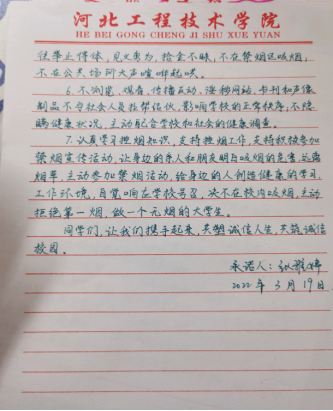 河北工程技术学院
HE BEI GONG CHENG JI SHU XUE YUAN
往举止得体,见义勇为,拾金不昧,不在禁烟区吸烟,
不在公共场所大声喧哗起哄。
6.不浏览、观看、传播反动、淫秽网站、书刊和声像
制品不与社会人员拉帮结伙,影响学校的正常秩序,不隐
瞒健康状况,主动配合学校和社会的健康调查。
7.认真学习控烟知识,支持控烟工作,支持积极参加
禁烟宣传活动,让身边的亲人和朋友明白吸烟的危害,远离
烟草,主动参加禁烟活动,给身边的人创造健康的学习、
工作环境,自觉响应学校号召,决不在校内吸烟,主动
拒绝第一烟,做一个无烟的大学生。
同学们,让我们携手起来,共塑诚信人生,共筑诚信
校园。
承诺人:张
2022年3月19日